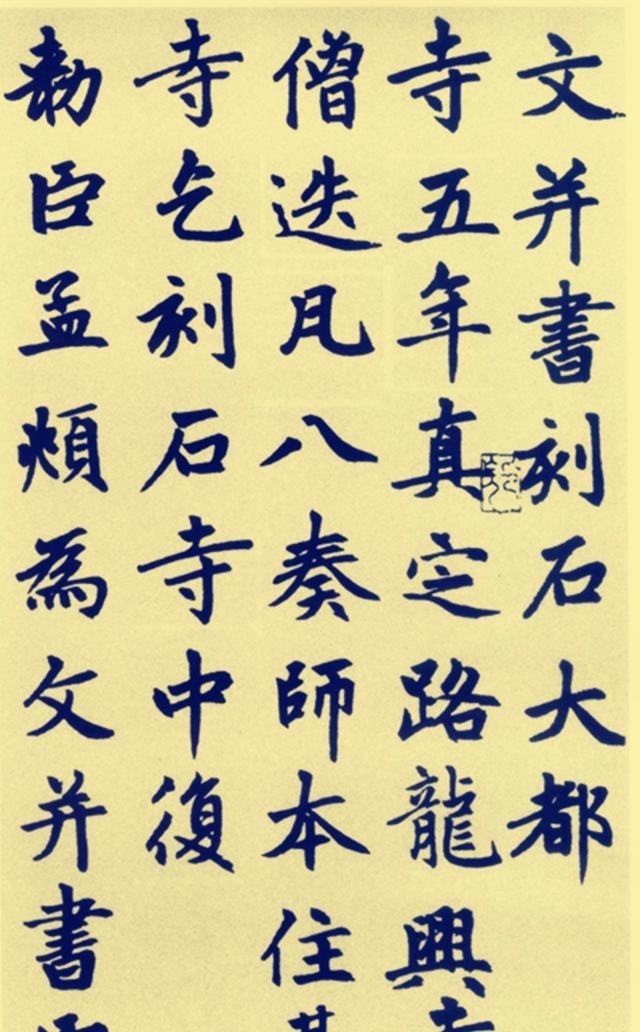 文并書刻石大都
寺五年真定路龍興
僧迭凡八奏師本住其
寺乞刻石寺中復
勅臣孟頫為文并書